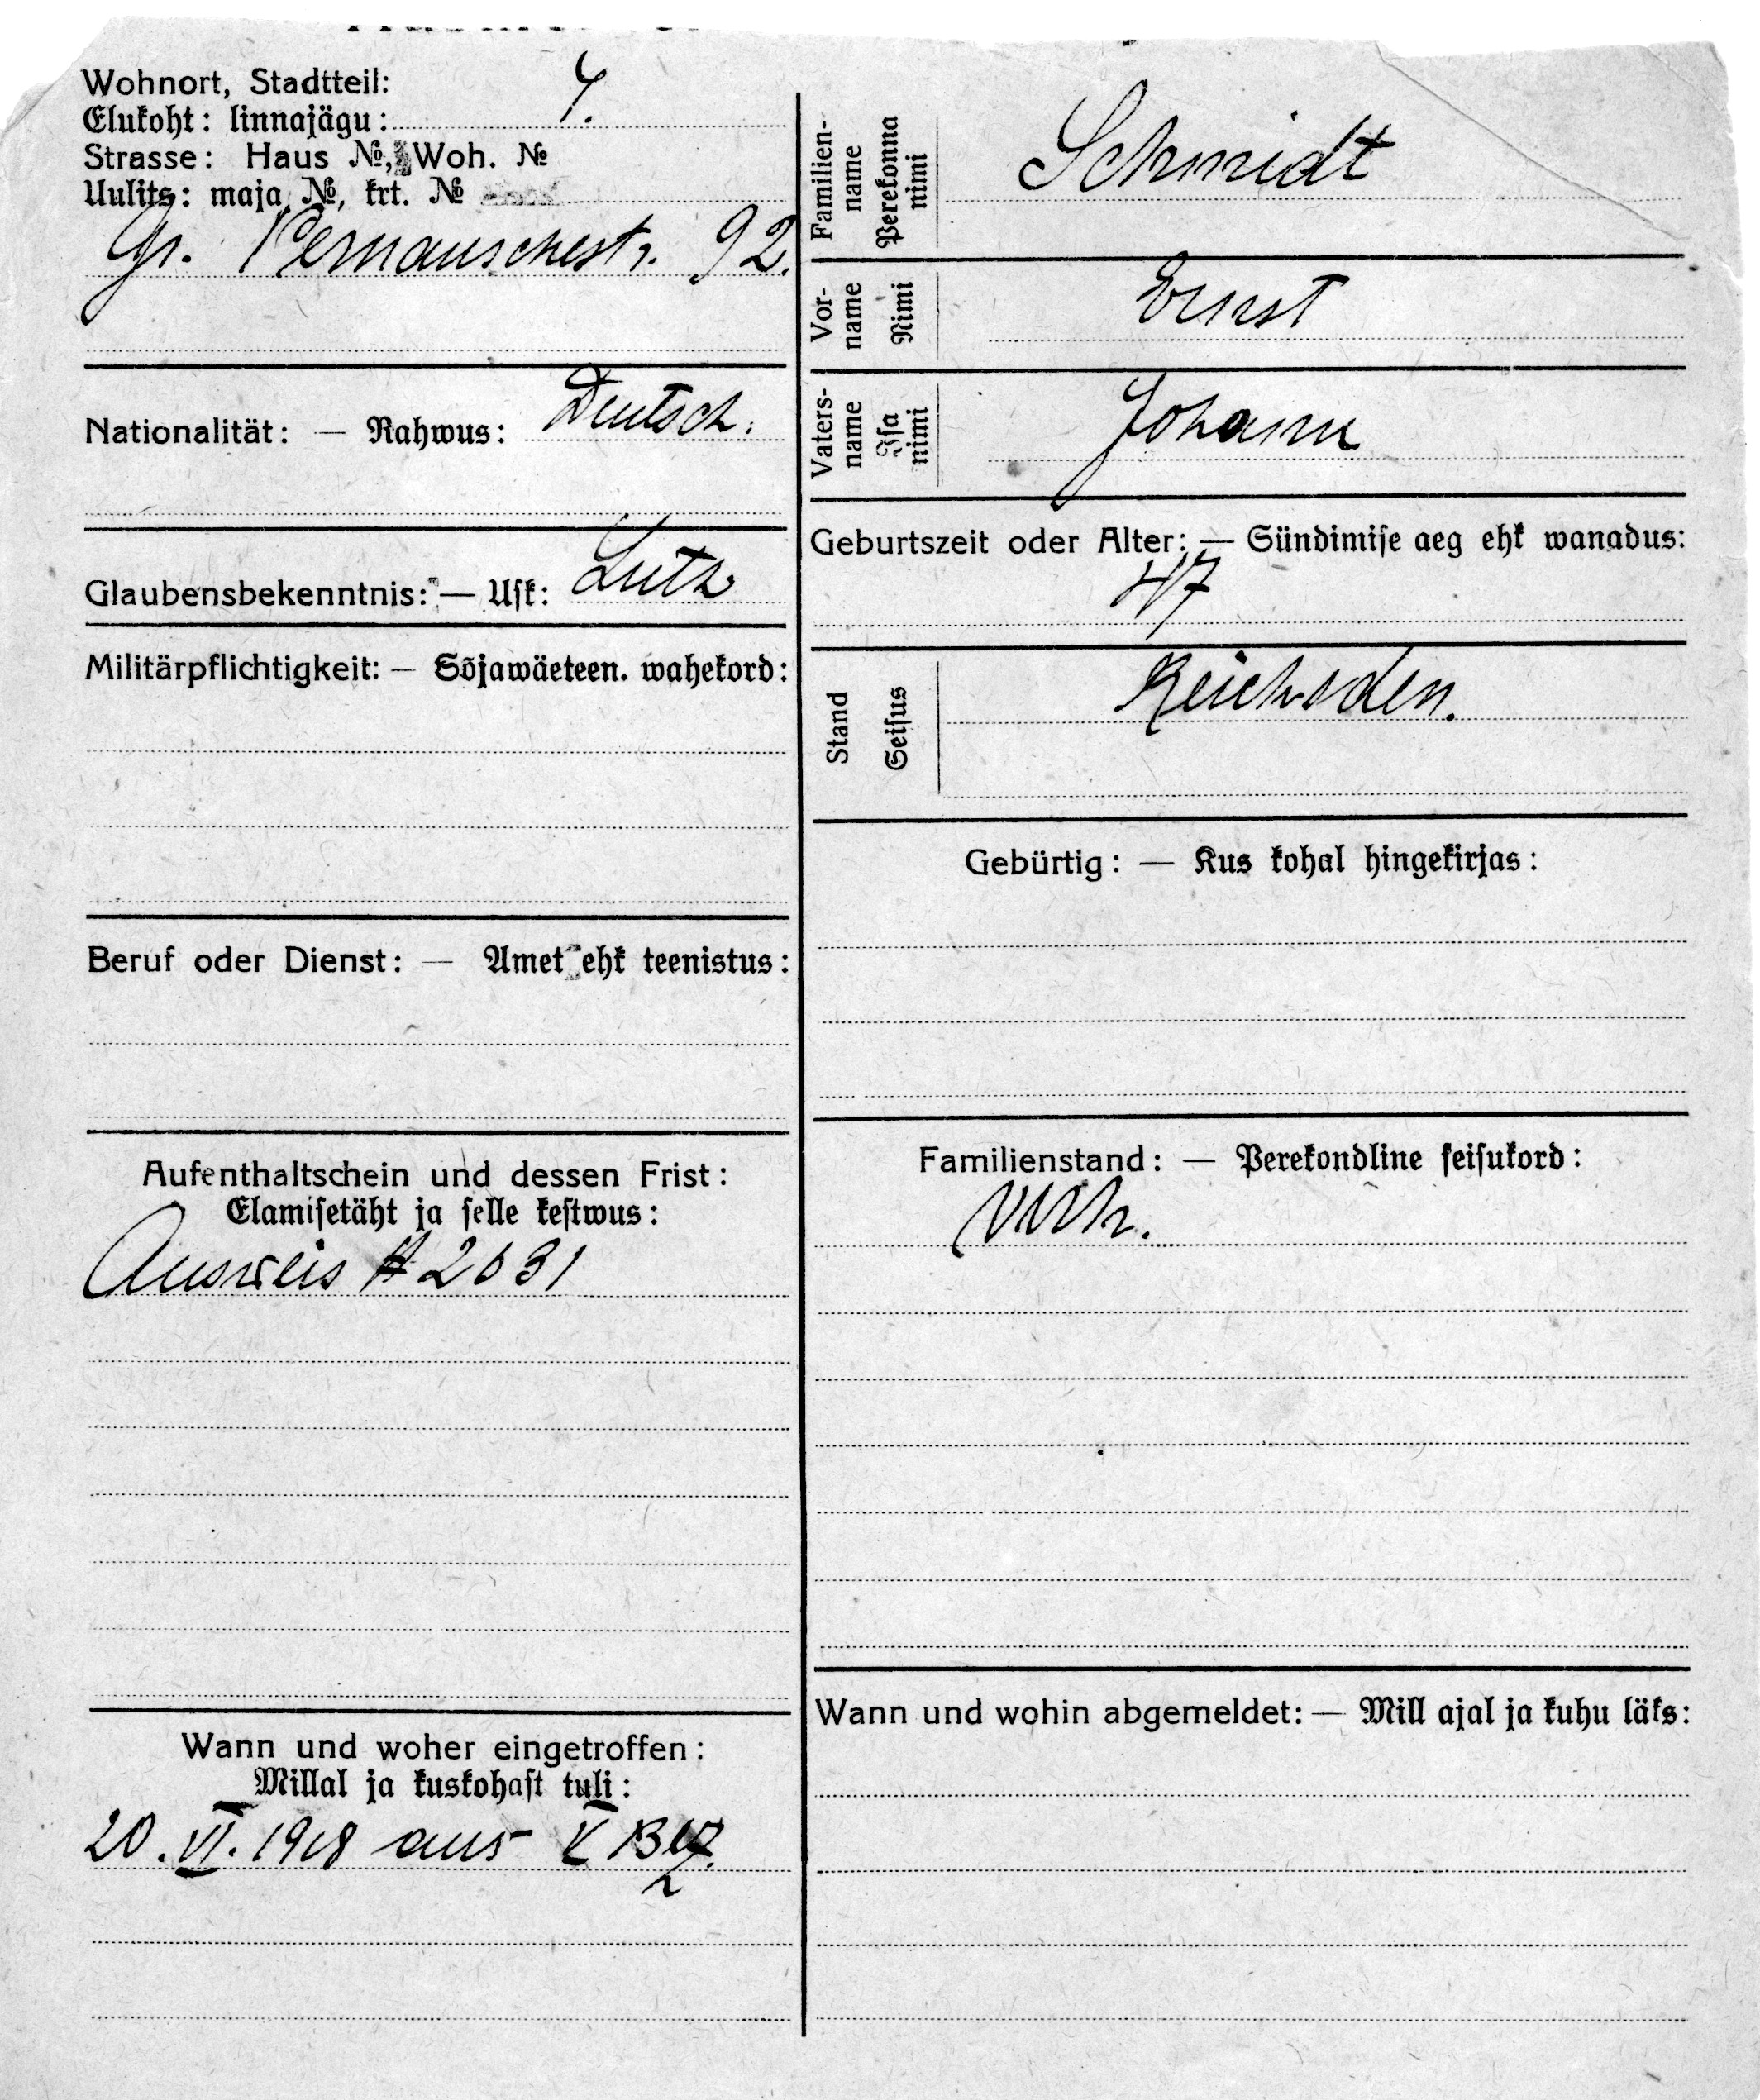 Wohnort, Stadtteil:
Elukoht: linnajägu: 4.
Strasse: Haus №, Woh. №
Uulits: maja №, krt. №
Gr. Pernauschestr. 92.
Nationalität: — Rahwus: Deutsch.
Glaubensbekenntnis: — Usk: Luth
Militärpflichtigkeit: — Sõjawäeteen. wahekord:
Beruf oder Dienst: — Amet ehk teenistus:
Aufenthaltschein und dessen Frist:
Elamisetäht ja selle kestwus:
Ausweis # 2631
Wann und woher eingetroffen:
Millal ja kuskohast tuli:
20. VI. 1918 aus V
Familien-
name
Perekonna
nimi
Schmidt
Vor-
name
Nimi
Ernst
Vaters-
name
Isa
nimi
Johann
Geburtszeit oder Alter: — Sündimise aeg ehk wanadus:
47
Stand
Seisus
Reichsden.
Gebürtig: — Kus kohal hingekirjas:
Familienstand: — Perekondline seisukord:
verh.
Wann und wohin abgemeldet: — Mill ajal ja kuhu läks: